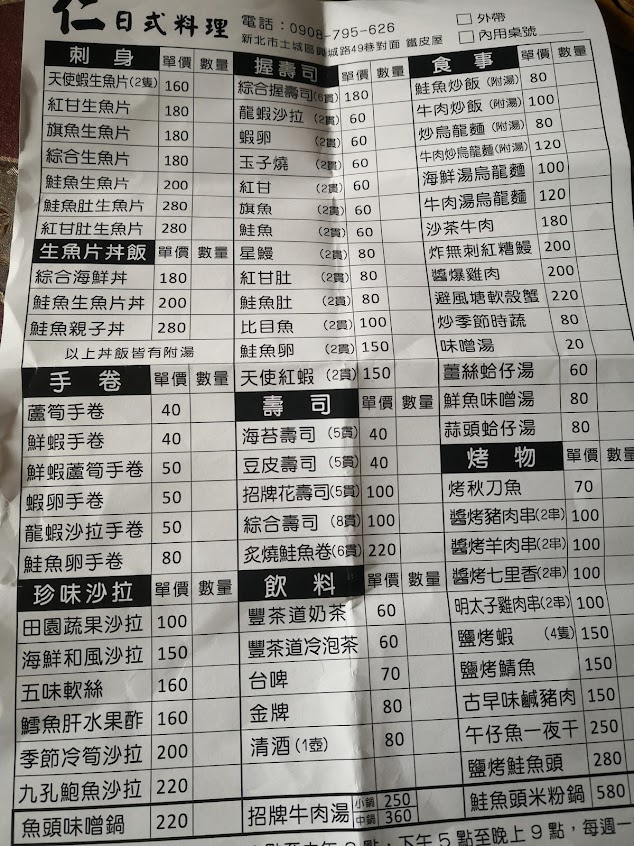 仁日式料理
電話：0908-795-626
新北市土城區興城路49巷對面 鐵皮屋
□外帶
□內用桌號
刺身 單價 數量
天使蝦生魚片(2隻) 160
紅甘生魚片 180
旗魚生魚片 180
綜合生魚片 180
鮭魚生魚片 200
鮭魚肚生魚片 280
紅甘肚生魚片 280
生魚片丼飯 單價 數量
綜合海鮮丼 180
鮭魚生魚片丼 200
鮭魚親子丼 280
以上丼飯皆有附湯
手卷 單價 數量
蘆筍手卷 40
鮮蝦手卷 40
鮮蝦蘆筍手卷 50
蝦卵手卷 50
龍蝦沙拉手卷 50
鮭魚卵手卷 80
珍味沙拉 單價 數量
田園蔬果沙拉 100
海鮮和風沙拉 150
五味軟絲 160
鱈魚肝水果酢 160
季節冷筍沙拉 200
九孔鮑魚沙拉 220
魚頭味噌鍋 220
握壽司 單價 數量
綜合握壽司(6貫) 180
龍蝦沙拉 (2貫) 60
蝦卵 (2貫) 60
玉子燒 (2貫) 60
紅甘 (2貫) 60
旗魚 (2貫) 60
鮭魚 (2貫) 60
星鰻 (2貫) 80
紅甘肚 (2貫) 80
鮭魚肚 (2貫) 80
比目魚 (2貫) 100
鮭魚卵 (2貫) 150
天使紅蝦 (2貫) 150
壽司 單價 數量
海苔壽司 (5貫) 40
豆皮壽司 (5貫) 40
招牌花壽司(5貫) 100
綜合壽司 (8貫) 100
炙燒鮭魚卷(6貫) 220
飲料 單價 數量
豐茶道奶茶 60
豐茶道冷泡茶 60
台啤 70
金牌 80
清酒(1壺) 80
招牌牛肉湯 小鍋 250
中鍋 360
食事 單價 數量
鮭魚炒飯 (附湯) 80
牛肉炒飯 (附湯) 100
炒烏龍麵 (附湯) 80
牛肉炒烏龍麵 (附湯) 120
海鮮湯烏龍麵 100
牛肉湯烏龍麵 120
沙茶牛肉 180
炸無刺紅糟鰻 200
醬爆雞肉 200
避風塘軟殼蟹 220
炒季節時蔬 80
味噌湯 20
薑絲蛤仔湯 60
鮮魚味噌湯 80
蒜頭蛤仔湯 80
烤物 單價 數量
烤秋刀魚 70
醬烤豬肉串(2串) 100
醬烤羊肉串(2串) 100
醬烤七里香(2串) 100
明太子雞肉串(2串) 100
鹽烤蝦 (4隻) 150
鹽烤鯖魚 150
古早味鹹豬肉 150
午仔魚一夜干 250
鹽烤鮭魚頭 280
鮭魚頭米粉鍋 580
點，下午5點至晚上9點，每週一